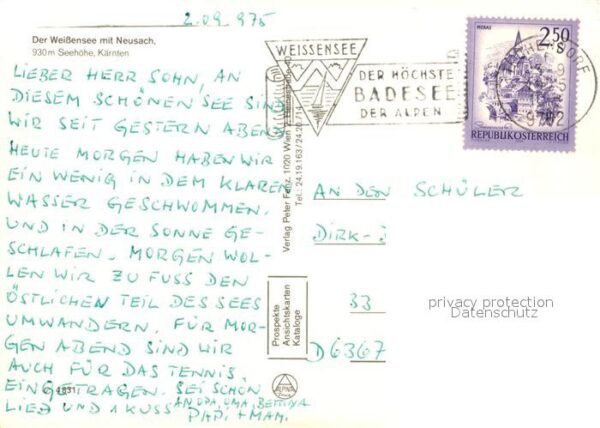 2.09.975
Der Weißensee mit Neusach,
930 m Seehöhe, Kärnten
LIEBER HERR SOHN, AN
DIESEM SCHÖNEN SEE SIND
WIR SEIT GESTERN ABEND
HEUTE MORGEN HABEN WIR
EIN WENIG IN DEM KLAREN
WASSER GESCHWOMMEN,
UND IN DER SONNE GE-
SCHLAFEN. MORGEN WOL-
LEN WIR ZU FUSS DEN
ÖSTLICHEN TEIL DES SEES
UMWANDERN, FÜR MOR-
GEN ABEND SIND WIR
AUCH FÜR DAS TENNIS
EINGETRAGEN. SEI SCHÖN
LIEB UND 1 KUSS AN OPA, OMA,
PAPI + MAM.
4831
Verlag Peter 1020 Wien
Tel.: 24.19.163/24.20.
Prospekte
Ansichtskarten
Kataloge
WEISSENSEE
DER HÖCHSTE
BADESEE
DER ALPEN
2.50
REPUBLIK ÖSTERREICH
9762
AN DEN SCHÜLER
DIRK-
33
D6367
privacy protection
Datenschutz